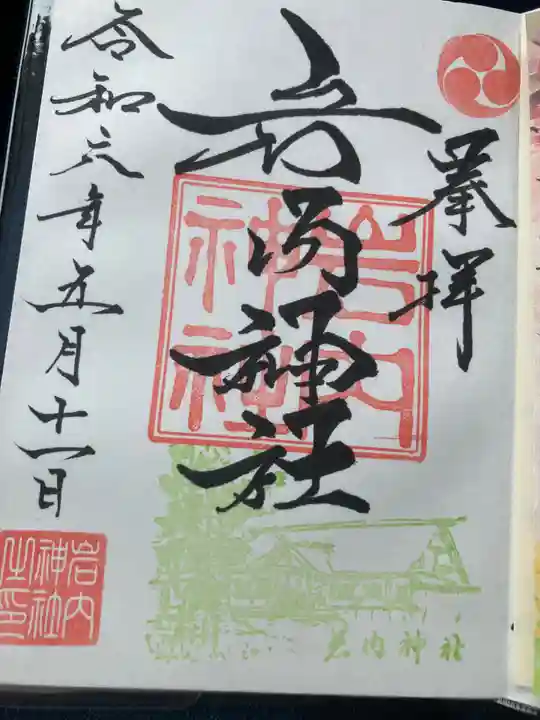 奉拝
岩内神社
岩内
神社
令和六年五月十一日
岩内
神社
之印
岩内神社